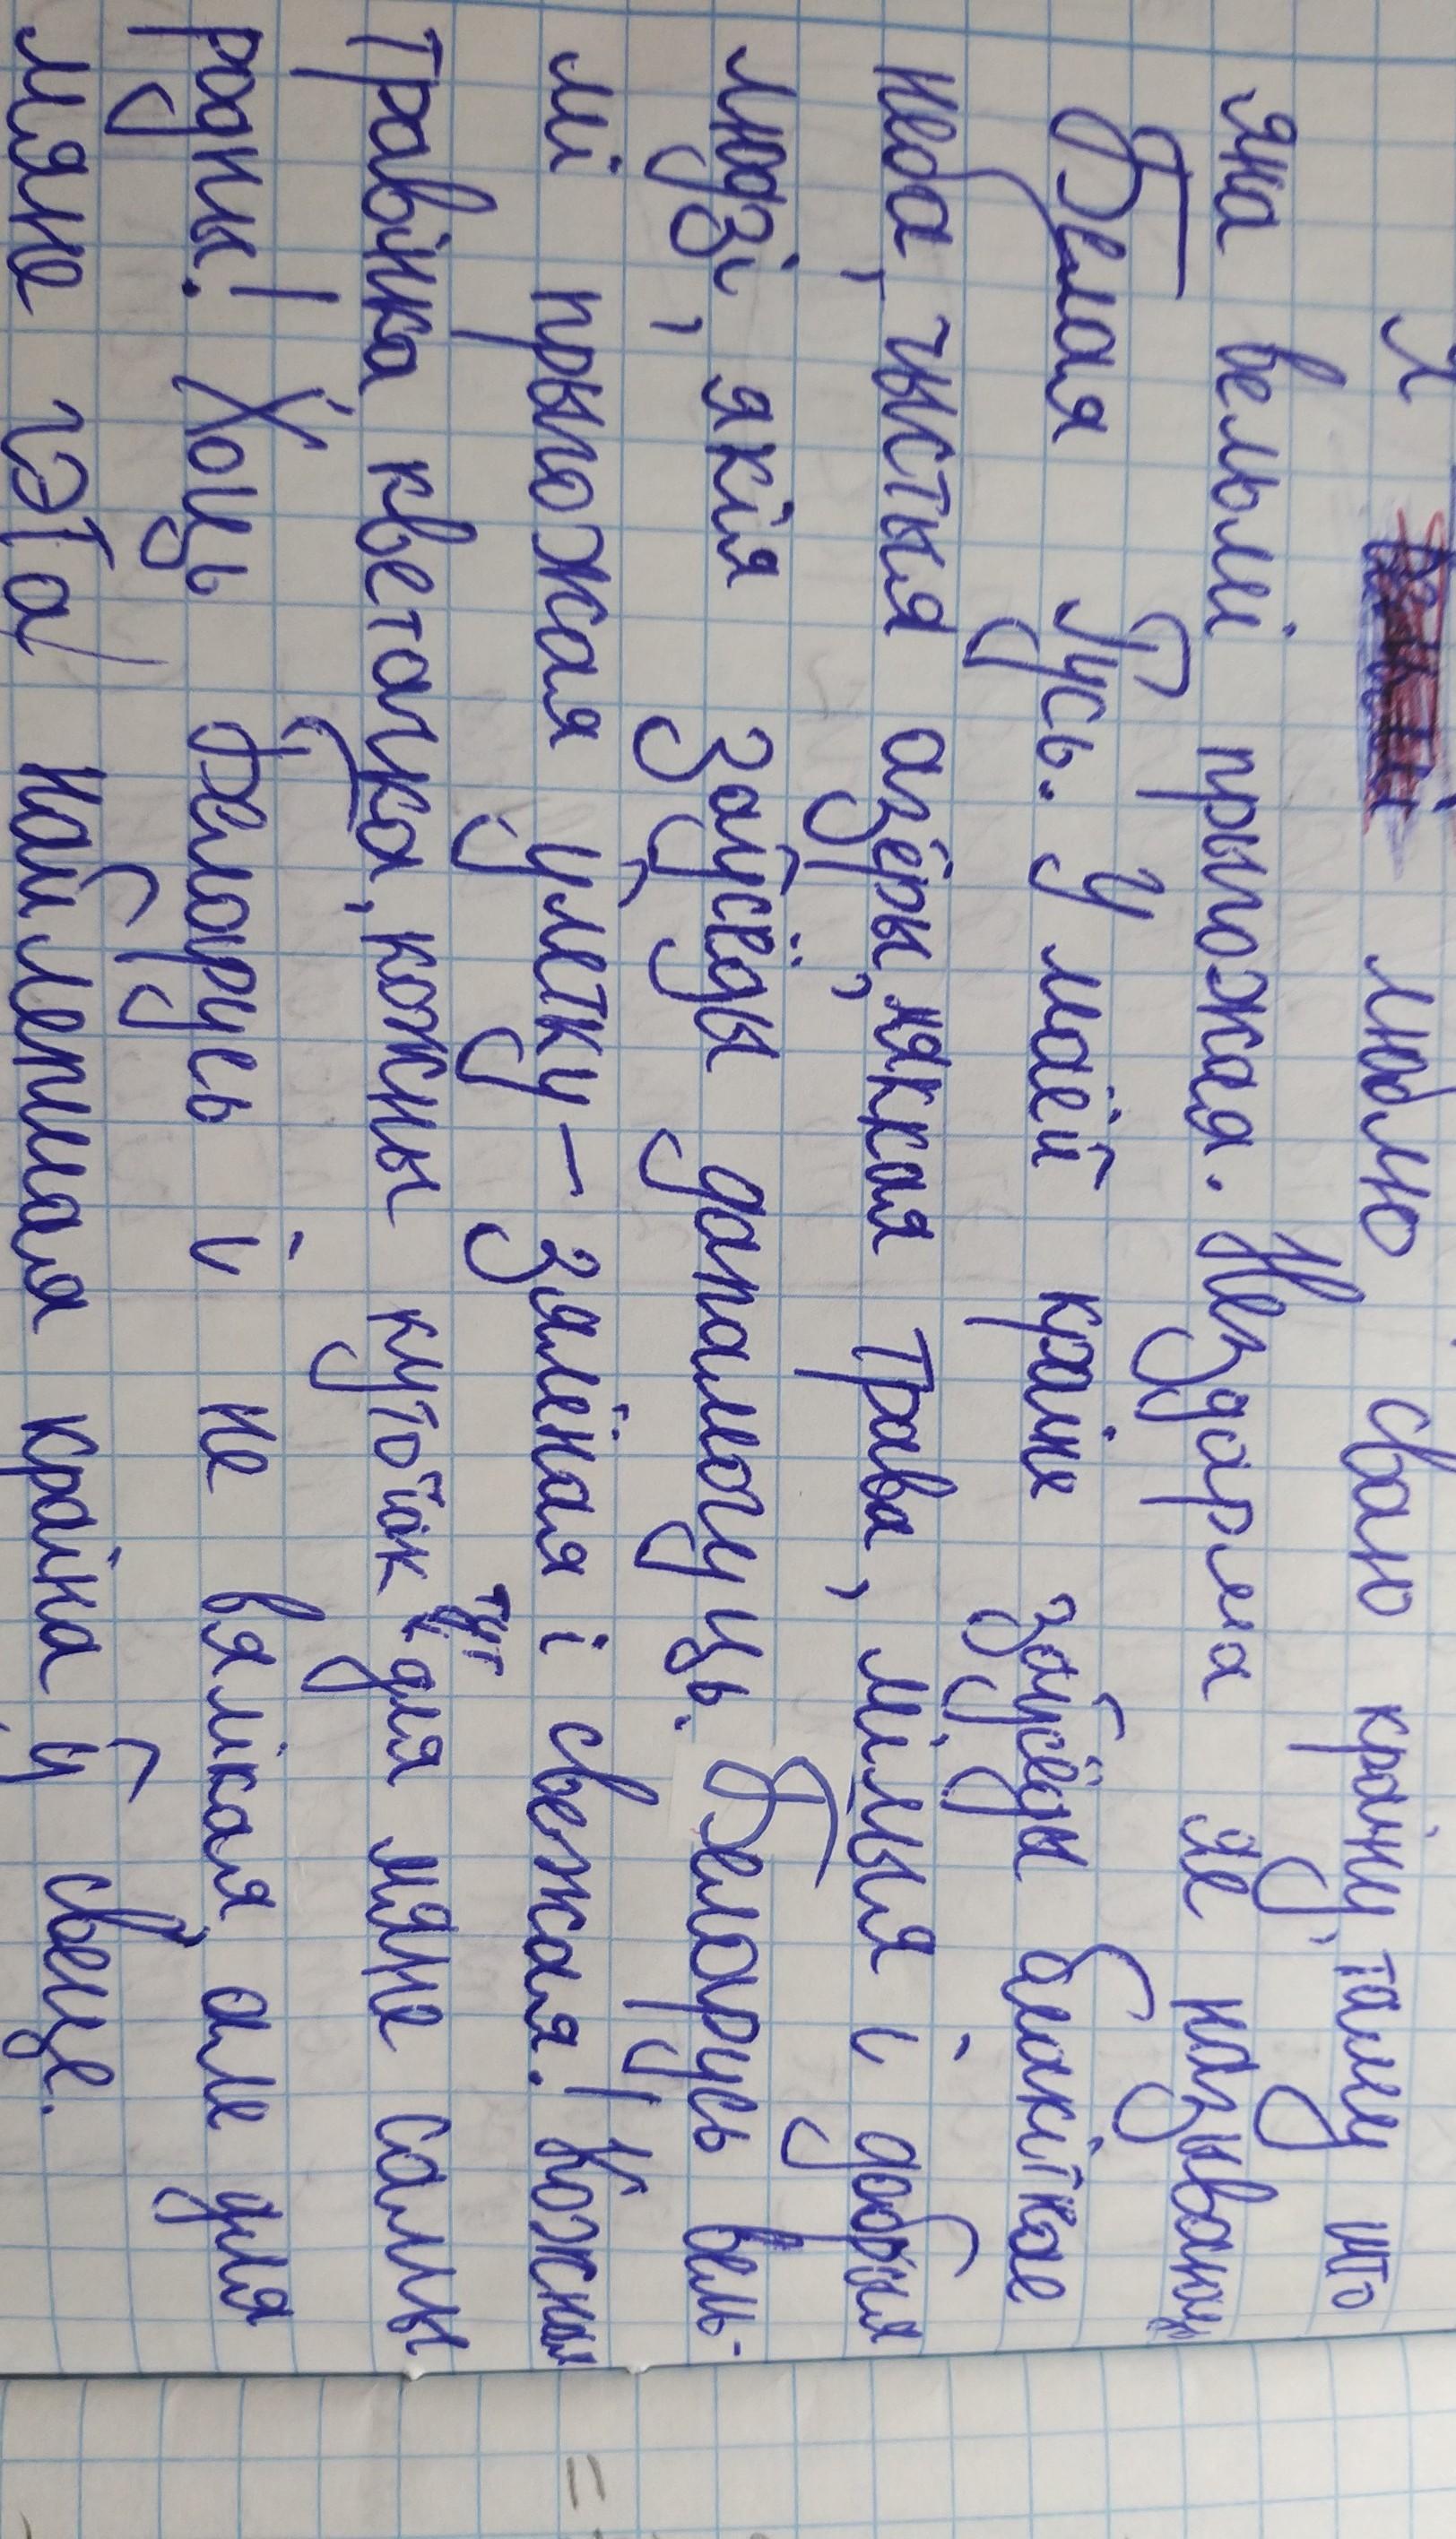 Я люблю сваю краіну, таму што
яна вельмі прыгожая. Нездарма яе называюць
Белая Русь. У маёй краіне заўсёды блакітнае
неба, чыстыя азёры, мяккая трава, мілыя і добрыя
людзі, якія заўсёды дапамогуць. Беларусь вель-
мі прыгожая улетку - зялёная і свежая! Кожная
травінка кветачка, кожны куточак тут для мяне самы
родны! Хоць Беларусь і не вялікая, але для
мяне гэта найлепшая краіна ў свеце.